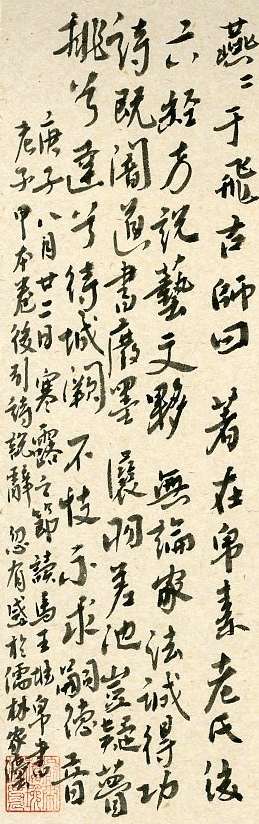 燕〻于飛古師曰 著在帛素老氏後
六經方說藝文夥 無論家法誠得功
詩既闇通書廢墨 差池豈疑瞢
挑兮達兮待城闕 不忮不求嗣德音
庚子八月廿二日寒露之節讀馬王堆帛書
老子甲本卷後引詩說辭忽有感於儒林家灋